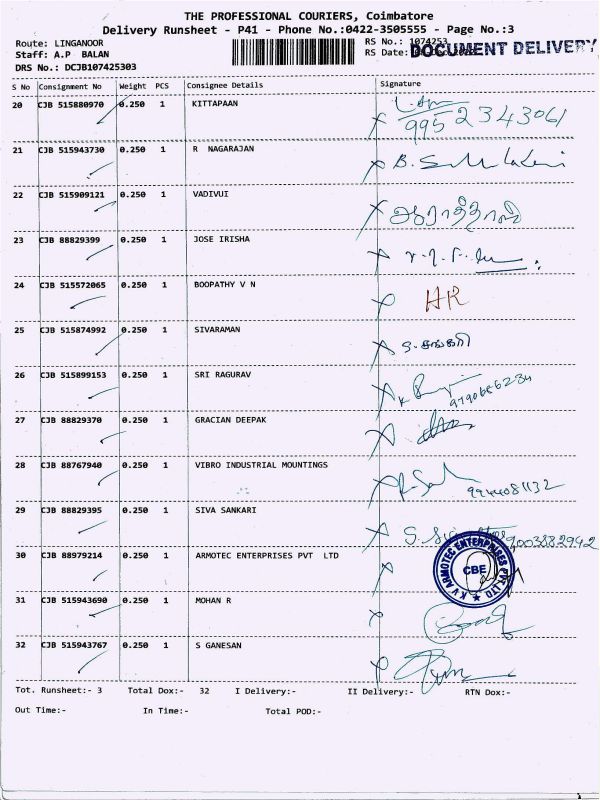 THE PROFESSIONAL COURIERS, Coimbatore
Delivery Runsheet - P41 - Phone No.:0422-3505555 - Page No.:3
Route: LINGANOOR
RS No.: 1074253
DOCUMENT DELIVERY
Staff: A.P BALAN
RS Date:
DRS No.: DCJB107425303
S No Consignment No Weight PCS Consignee Details Signature
20 CJB 515880970 0.250 1 KITTAPAAN
9952343061
21 CJB 515943730 0.250 1 R NAGARAJAN
22 CJB 515909121 0.250 1 VADIVUI
23 CJB 88829399 0.250 1 JOSE IRISHA
24 CJB 515572065 0.250 1 BOOPATHY V N HR
25 CJB 515874992 0.250 1 SIVARAMAN
26 CJB 515899153 0.250 1 SRI RAGURAV
27 CJB 88829370 0.250 1 GRACIAN DEEPAK
28 CJB 88767940 0.250 1 VIBRO INDUSTRIAL MOUNTINGS
9944081132
29 CJB 88829395 0.250 1 SIVA SANKARI
9003882942
30 CJB 88979214 0.250 1 ARMOTEC ENTERPRISES PVT LTD
K V ARMOTEC ENTERPRISES PVT LTD
CBE
31 CJB 515943690 0.250 1 MOHAN R
32 CJB 515943767 0.250 1 S GANESAN
Tot. Runsheet:- 3 Total Dox:- 32 I Delivery:- II Delivery:- RTN Dox:-
Out Time:- In Time:- Total POD:-